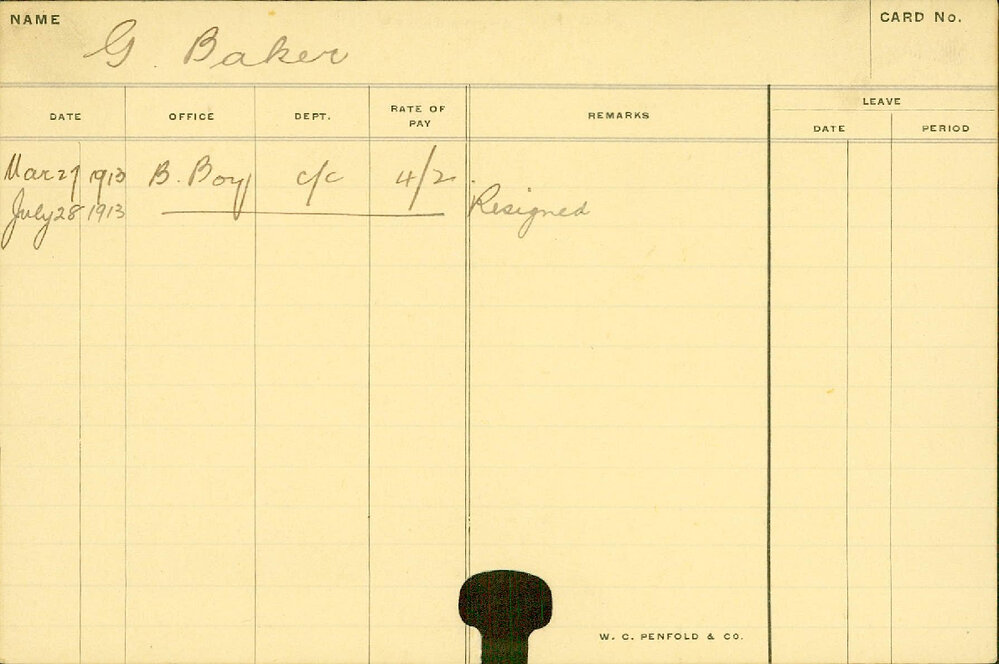 NAME
CARD No.
G Baker
DATE OFFICE DEPT. RATE OF PAY REMARKS LEAVE
DATE PERIOD
Mar 27 1913 B. Boy c/c 4/2
July 28 1913 Resigned
W. C. PENFOLD & CO.